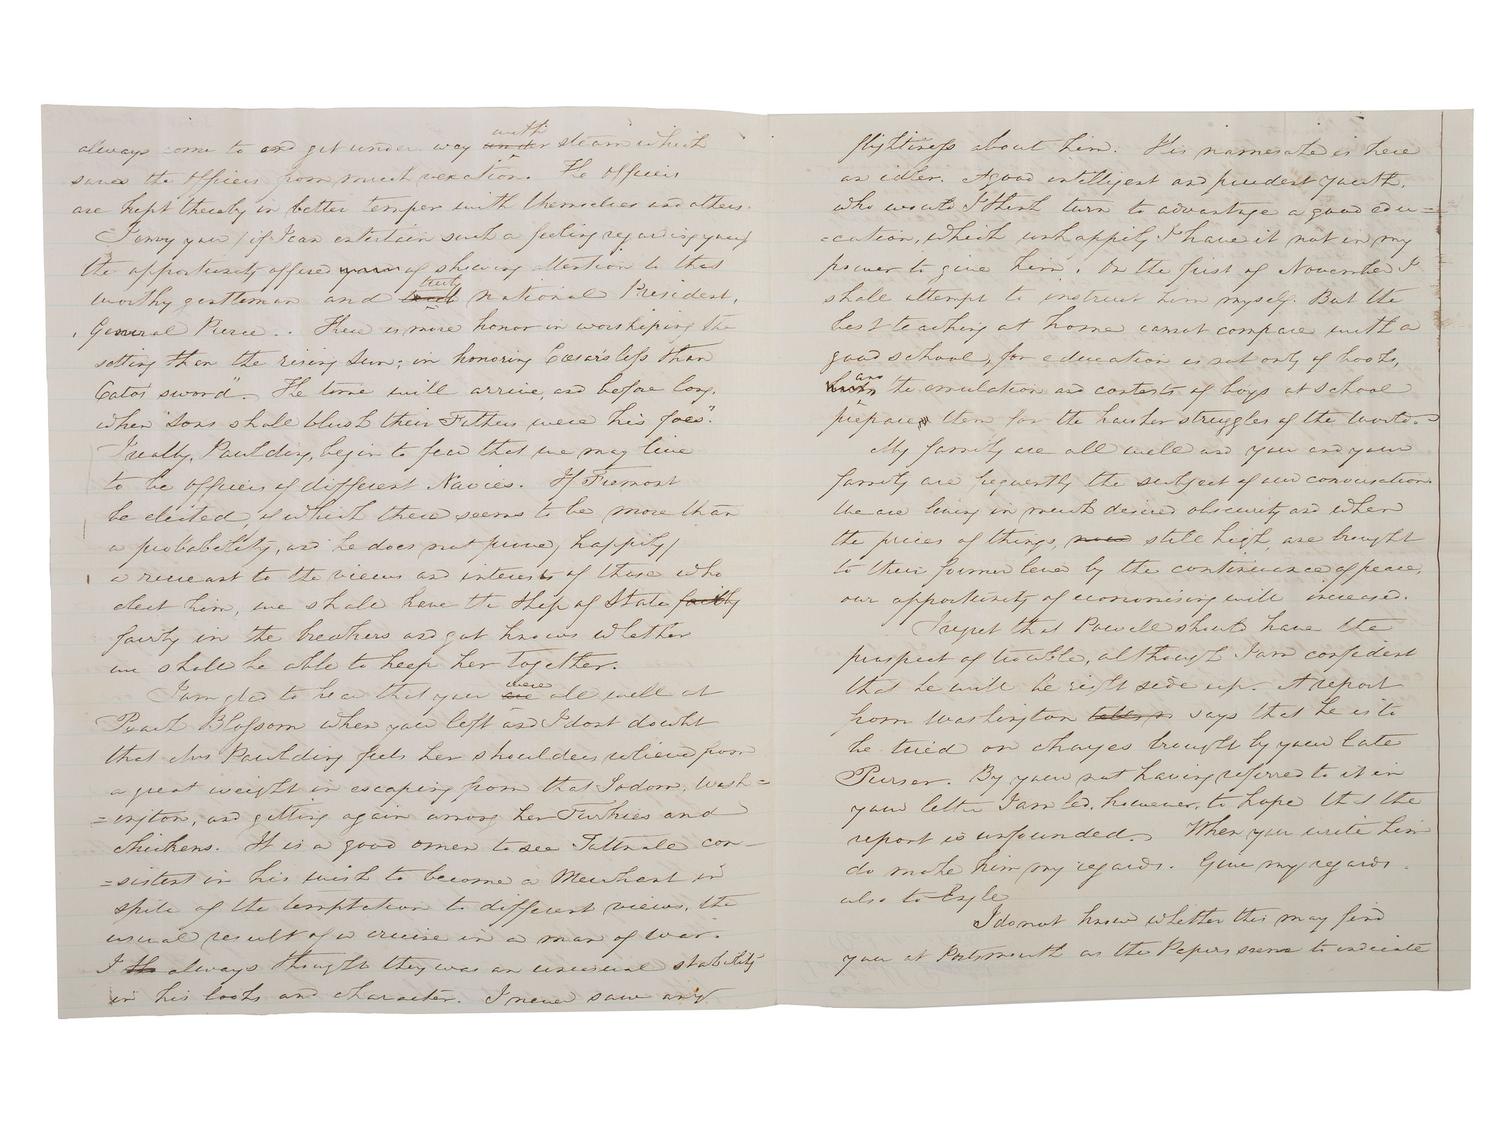 always come to and get under way under with steam which
saves the officers from much vexation. The officers
are kept thereby in better temper with themselves and others.
I envy you (if I can entertain such a feeling regarding you)
the opportunity offered you of showing attention to that
worthy gentleman and truly national President,
General Pierce. There is more honor in worshiping the
setting than the rising Sun; in honoring Cæsar's less than
Cato's sword". The time will arrive, and before long,
when Sons shall blush their Fathers were his foes".
I really, Paulding, begin to fear that we may live
to be officers of different Navies. If Fremont
be elected, of which there seems to be more than
a probability, and he does not prove, happily,
a recreant to the views and interests of those who
elect him, we shall have the Ship of State faitly
fairly in the breakers and god knows whether
we shall be able to keep her together.
I am glad to hear that your are were all well at
Peach Blossom when you left and I dont doubt
that Mrs Paulding feels her shoulders relieved from
a great weight in escaping from that Sodom, Wash=
=ington, and getting again among her Turkies and
chickens. It is a good omen to see Tattnall con-
=sistent in his wish to become a Merchant in
spite of the temptation to different views, the
usual result of a cruise in a man of war.
I th always thought they was an unusual stability
in his looks and character. I never saw any
flightiness about him. His namesake is here
an idler. A good intelligent and prudent youth,
who would I think turn to advantage a good edu=
=cation, which unhappily I have it not in my
power to give him. On the first of November I
shall attempt to instruct him myself. But the
best teaching at home cannot compare with a
good school, for education is not only of books,
and the emulation and contests of boys at school
prepare them for the harsher struggles of the world.
My family are all well and you and your
family are frequently the subject of our conversation.
We are living in much desired obscurity and when
the prices of things, now still high, are brought
to their former level by the continuance of peace,
our opportunity of economising will increase.
I regret that Powell should have the
prospect of trouble, although I am confident
that he will be right side up. A report
from Washington says that he is to
be tried on charges brought by your late
Purser. By your not having referred to it in
your letter I am led, however, to hope that the
report is unfounded. When you write him
do make him my regards. Give my regards
also to
I do not know whether this may find
you at Portsmouth as the Papers seem to indicate